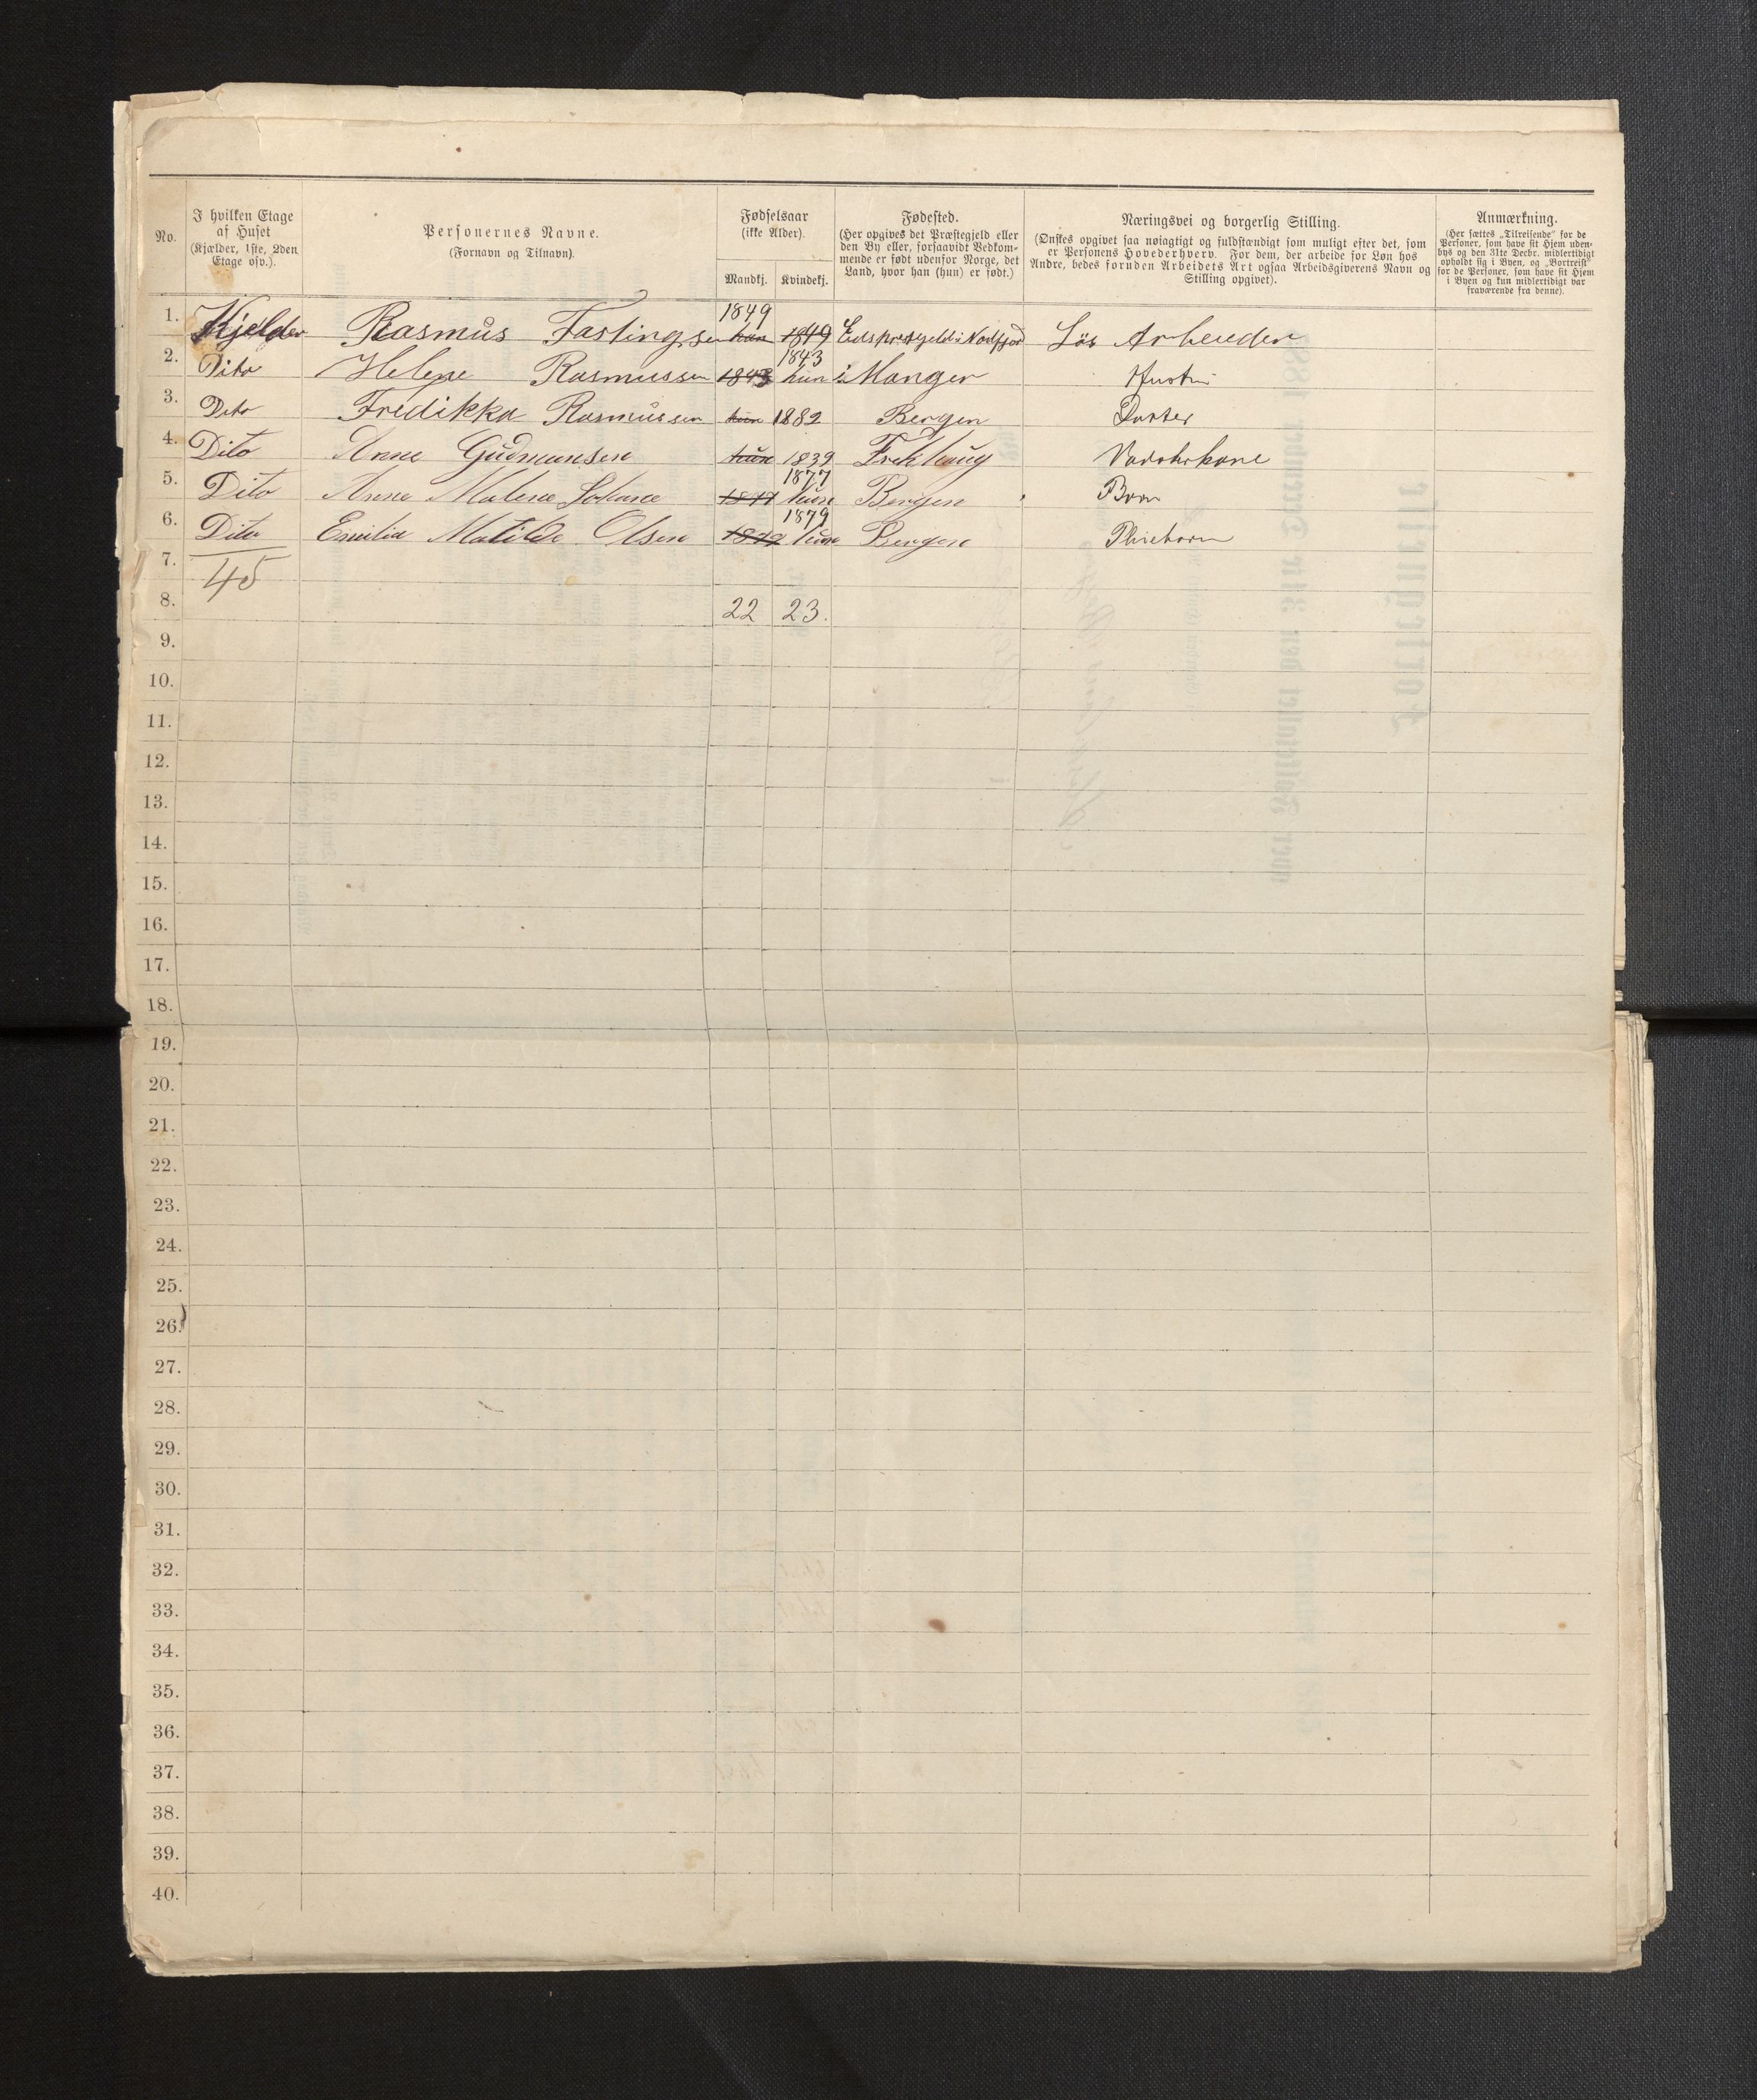 No.
I hvilken Etage
af Huset
(Kjælder, 1ste, 2den
Etage osv.).
Personernes Navne.
(Fornavn og Tilnavn).
Fødselsaar
(ikke Alder).
Mandkj.
Kvindekj.
Fødested.
(Her opgives det Præstegjeld eller
den By eller, forsaavidt Vedkom-
mende er født udenfor Norge, det
Land, hvor han (hun) er født.)
Næringsvei og borgerlig Stilling.
(Ønskes opgivet saa nøiagtigt og fuldstændigt som muligt efter det, som
er Personens Hovederhverv. For dem, der arbeide for Løn hos
Andre, bedes foruden Arbeidets Art ogsaa Arbeidsgiverens Navn og
Stilling opgivet).
Anmærkning.
(Her sættes „Tilreisende" for de
Personer, som have sit Hjem uden-
bys og den 31te Decbr. midlertidigt
opholdt sig i Byen, og „Bortreist"
for de Personer, som have sit Hjem
i Byen og kun midlertidigt var
fraværende fra denne).
1849
1. Kjelder Rasmus Fastingsen 1849 Eids prestgeld i Nordfjord Løs Arbeider
1843
2. Dito Helene Rasmussen 1843 hun i Manger Hustru
3. Dito Fredikka Rasmussen hun 1882 Bergen Datter
4. Dito Anne Gudmunsen hun 1839 Frekhaug
1877
5. Dito Anne Malene Johane 1877 hun Bergen Barn
1879
6. Dito Emilia Matilde Olsen 1879 hun Bergen Pleiebarn
7. 45
8. 22 23.
9.
10.
11.
12.
13.
14.
15.
16.
17.
18.
19.
20.
21.
22.
23.
24.
25.
26.
27.
28.
29.
30.
31.
32.
33.
34.
35.
36.
37.
38.
39.
40.